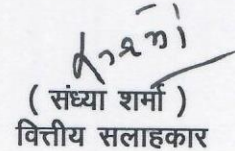 ( संध्या शर्मा )
वित्तीय सलाहकार